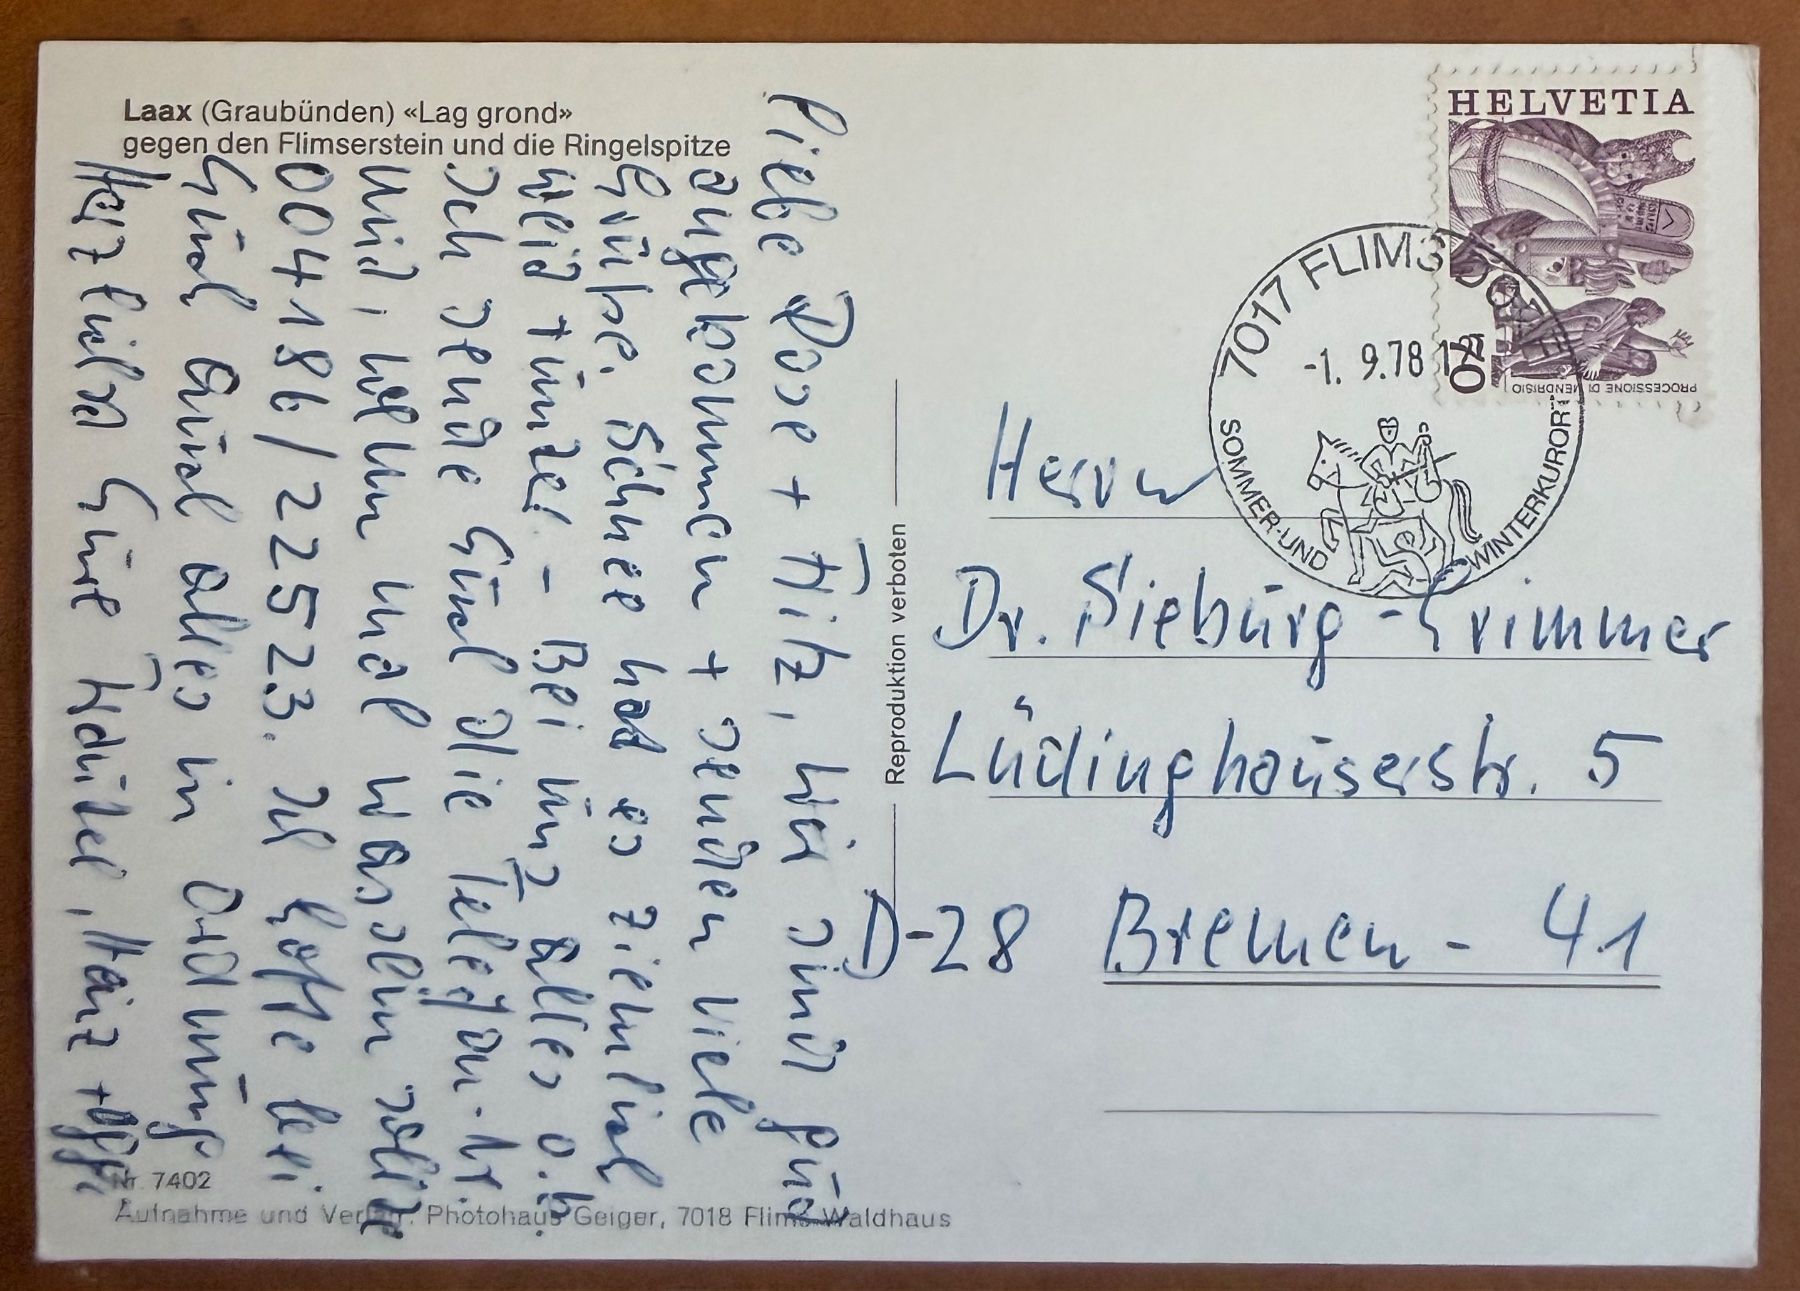 Laax (Graubünden) «Lag grond»
gegen den Flimserstein und die Ringelspitze
Liebe Rose + Fritz, wir sind gut
angekommen + senden viele
Grüße. Schnee hat es ziemlich
weit runter - Bei uns alles o.k.
Ich sende Euch die Telefon-Nr.
mid, wenn mal was sein sollte
004186/22523. Ich hoffe bei
Euch auch alles in Ordnung
Herzlichst Eure Hannel, Heinz +
Nr. 7402
Aufnahme und Verlag: Photohaus Geiger, 7018 Flims-Waldhaus
Reproduktion verboten
HELVETIA
70
PROCESSIONE DI MENDRISIO
7017 FLIMS DORF
-1. 9.78
SOMMER-UND WINTERKURORT
Herrn
Dr. Sieburg-Grimmer
Lüdinghauserstr. 5
D-28 Bremen - 41